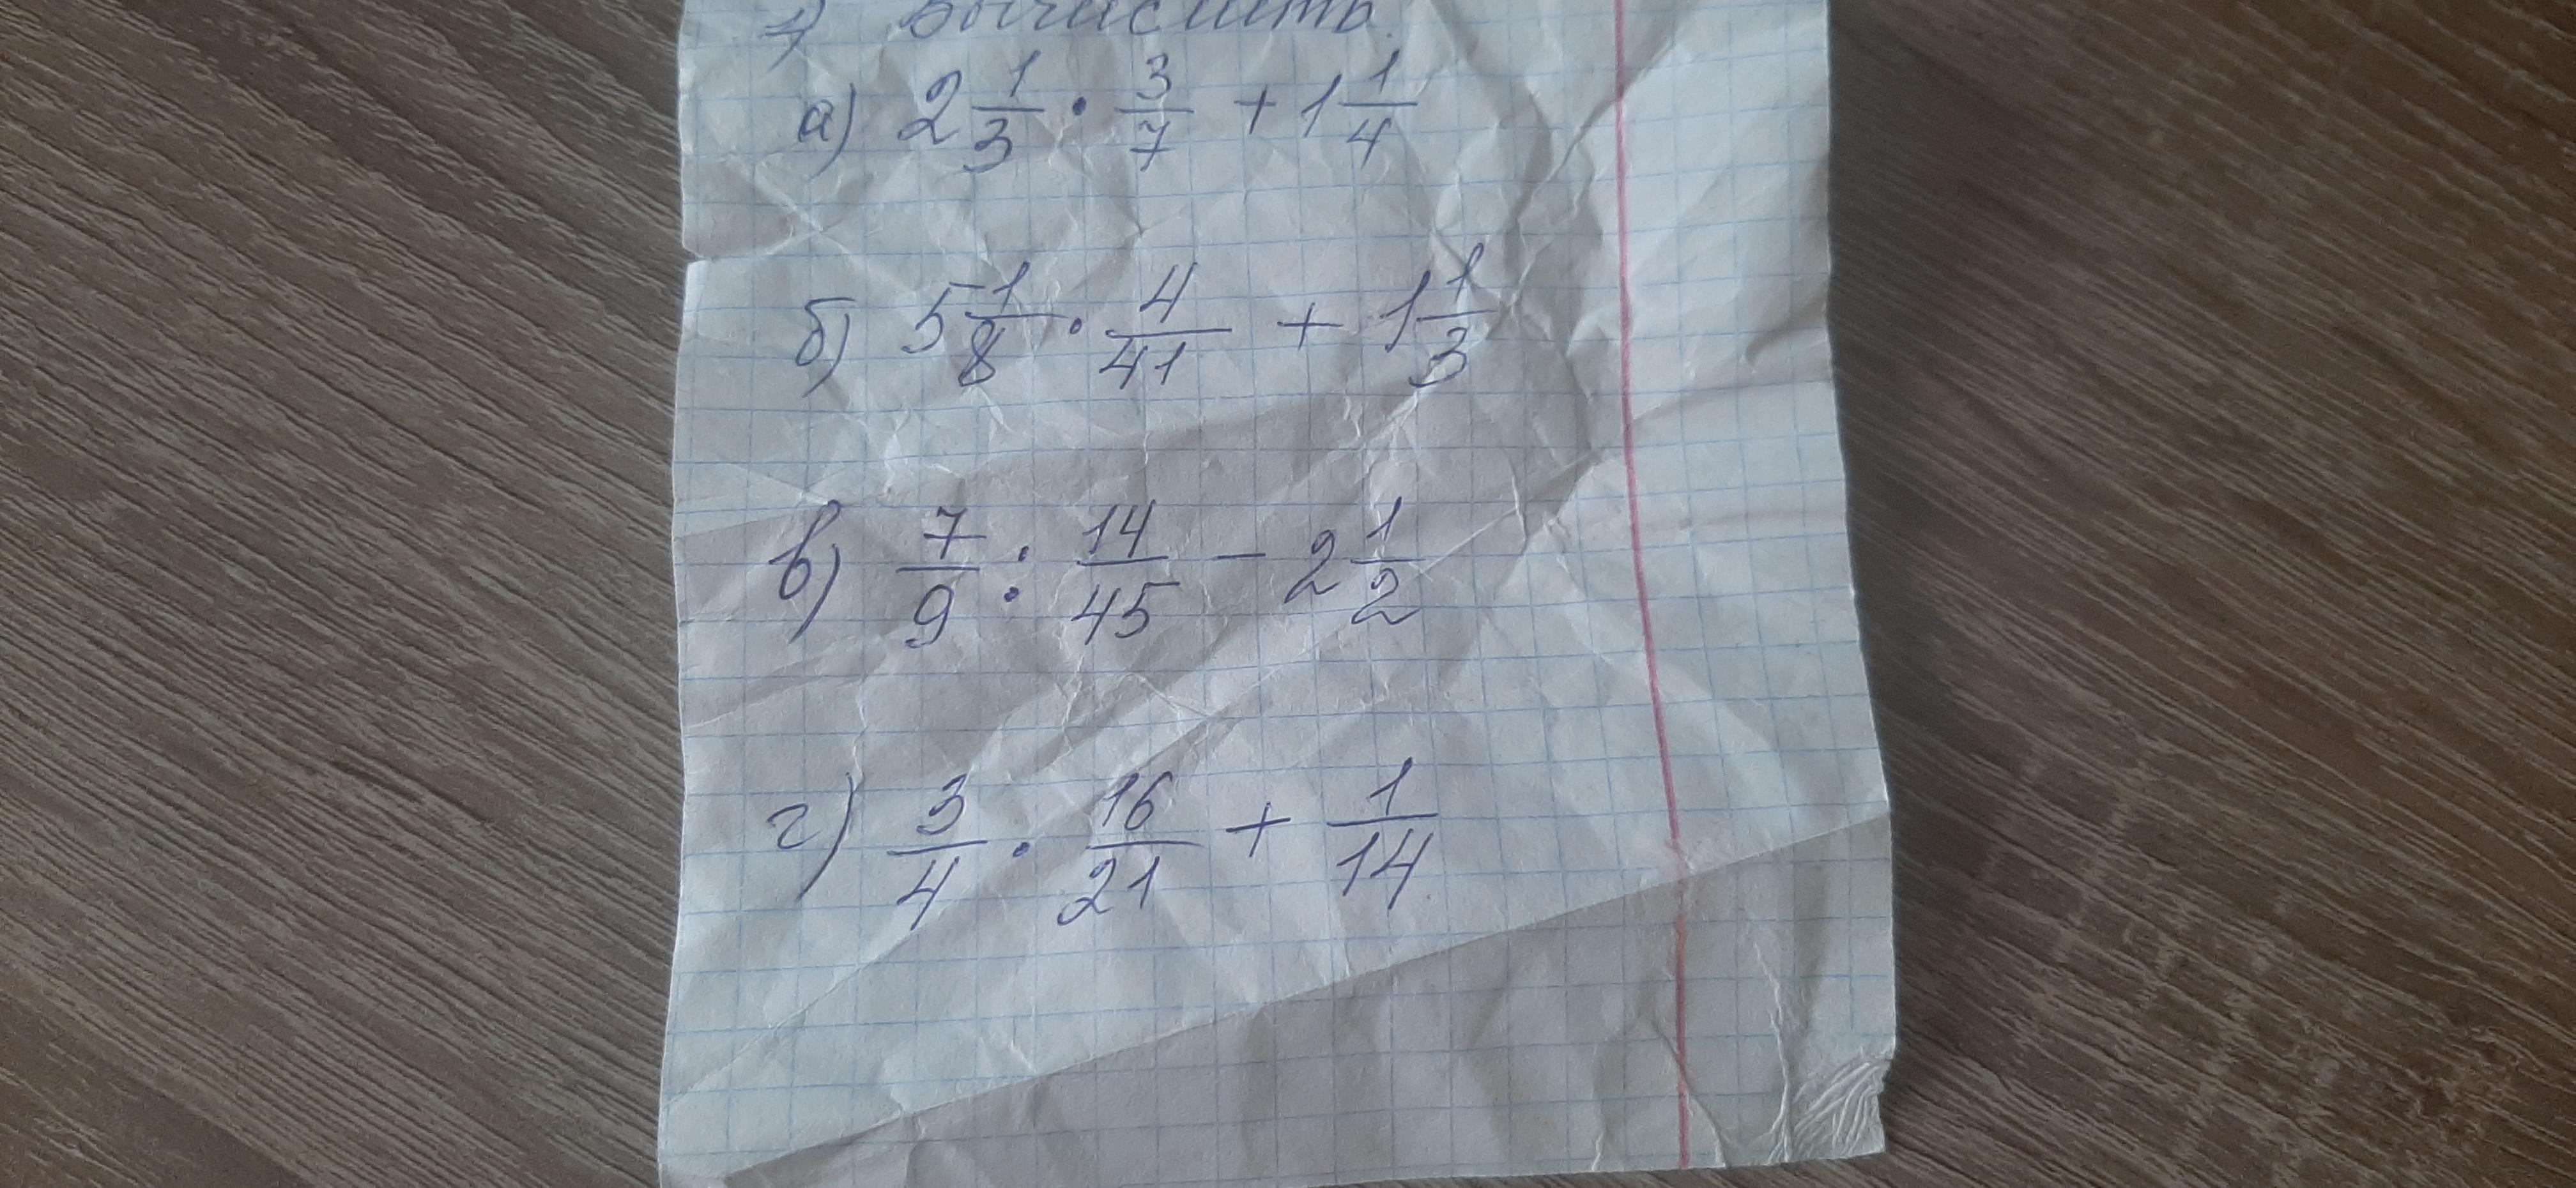 1) Вычислить.
а) 2 1/3 · 3/7 + 1 1/4
б) 5 1/8 · 4/41 + 1 1/3
в) 7/9 : 14/45 - 2 1/2
г) 3/4 · 16/21 + 1/14